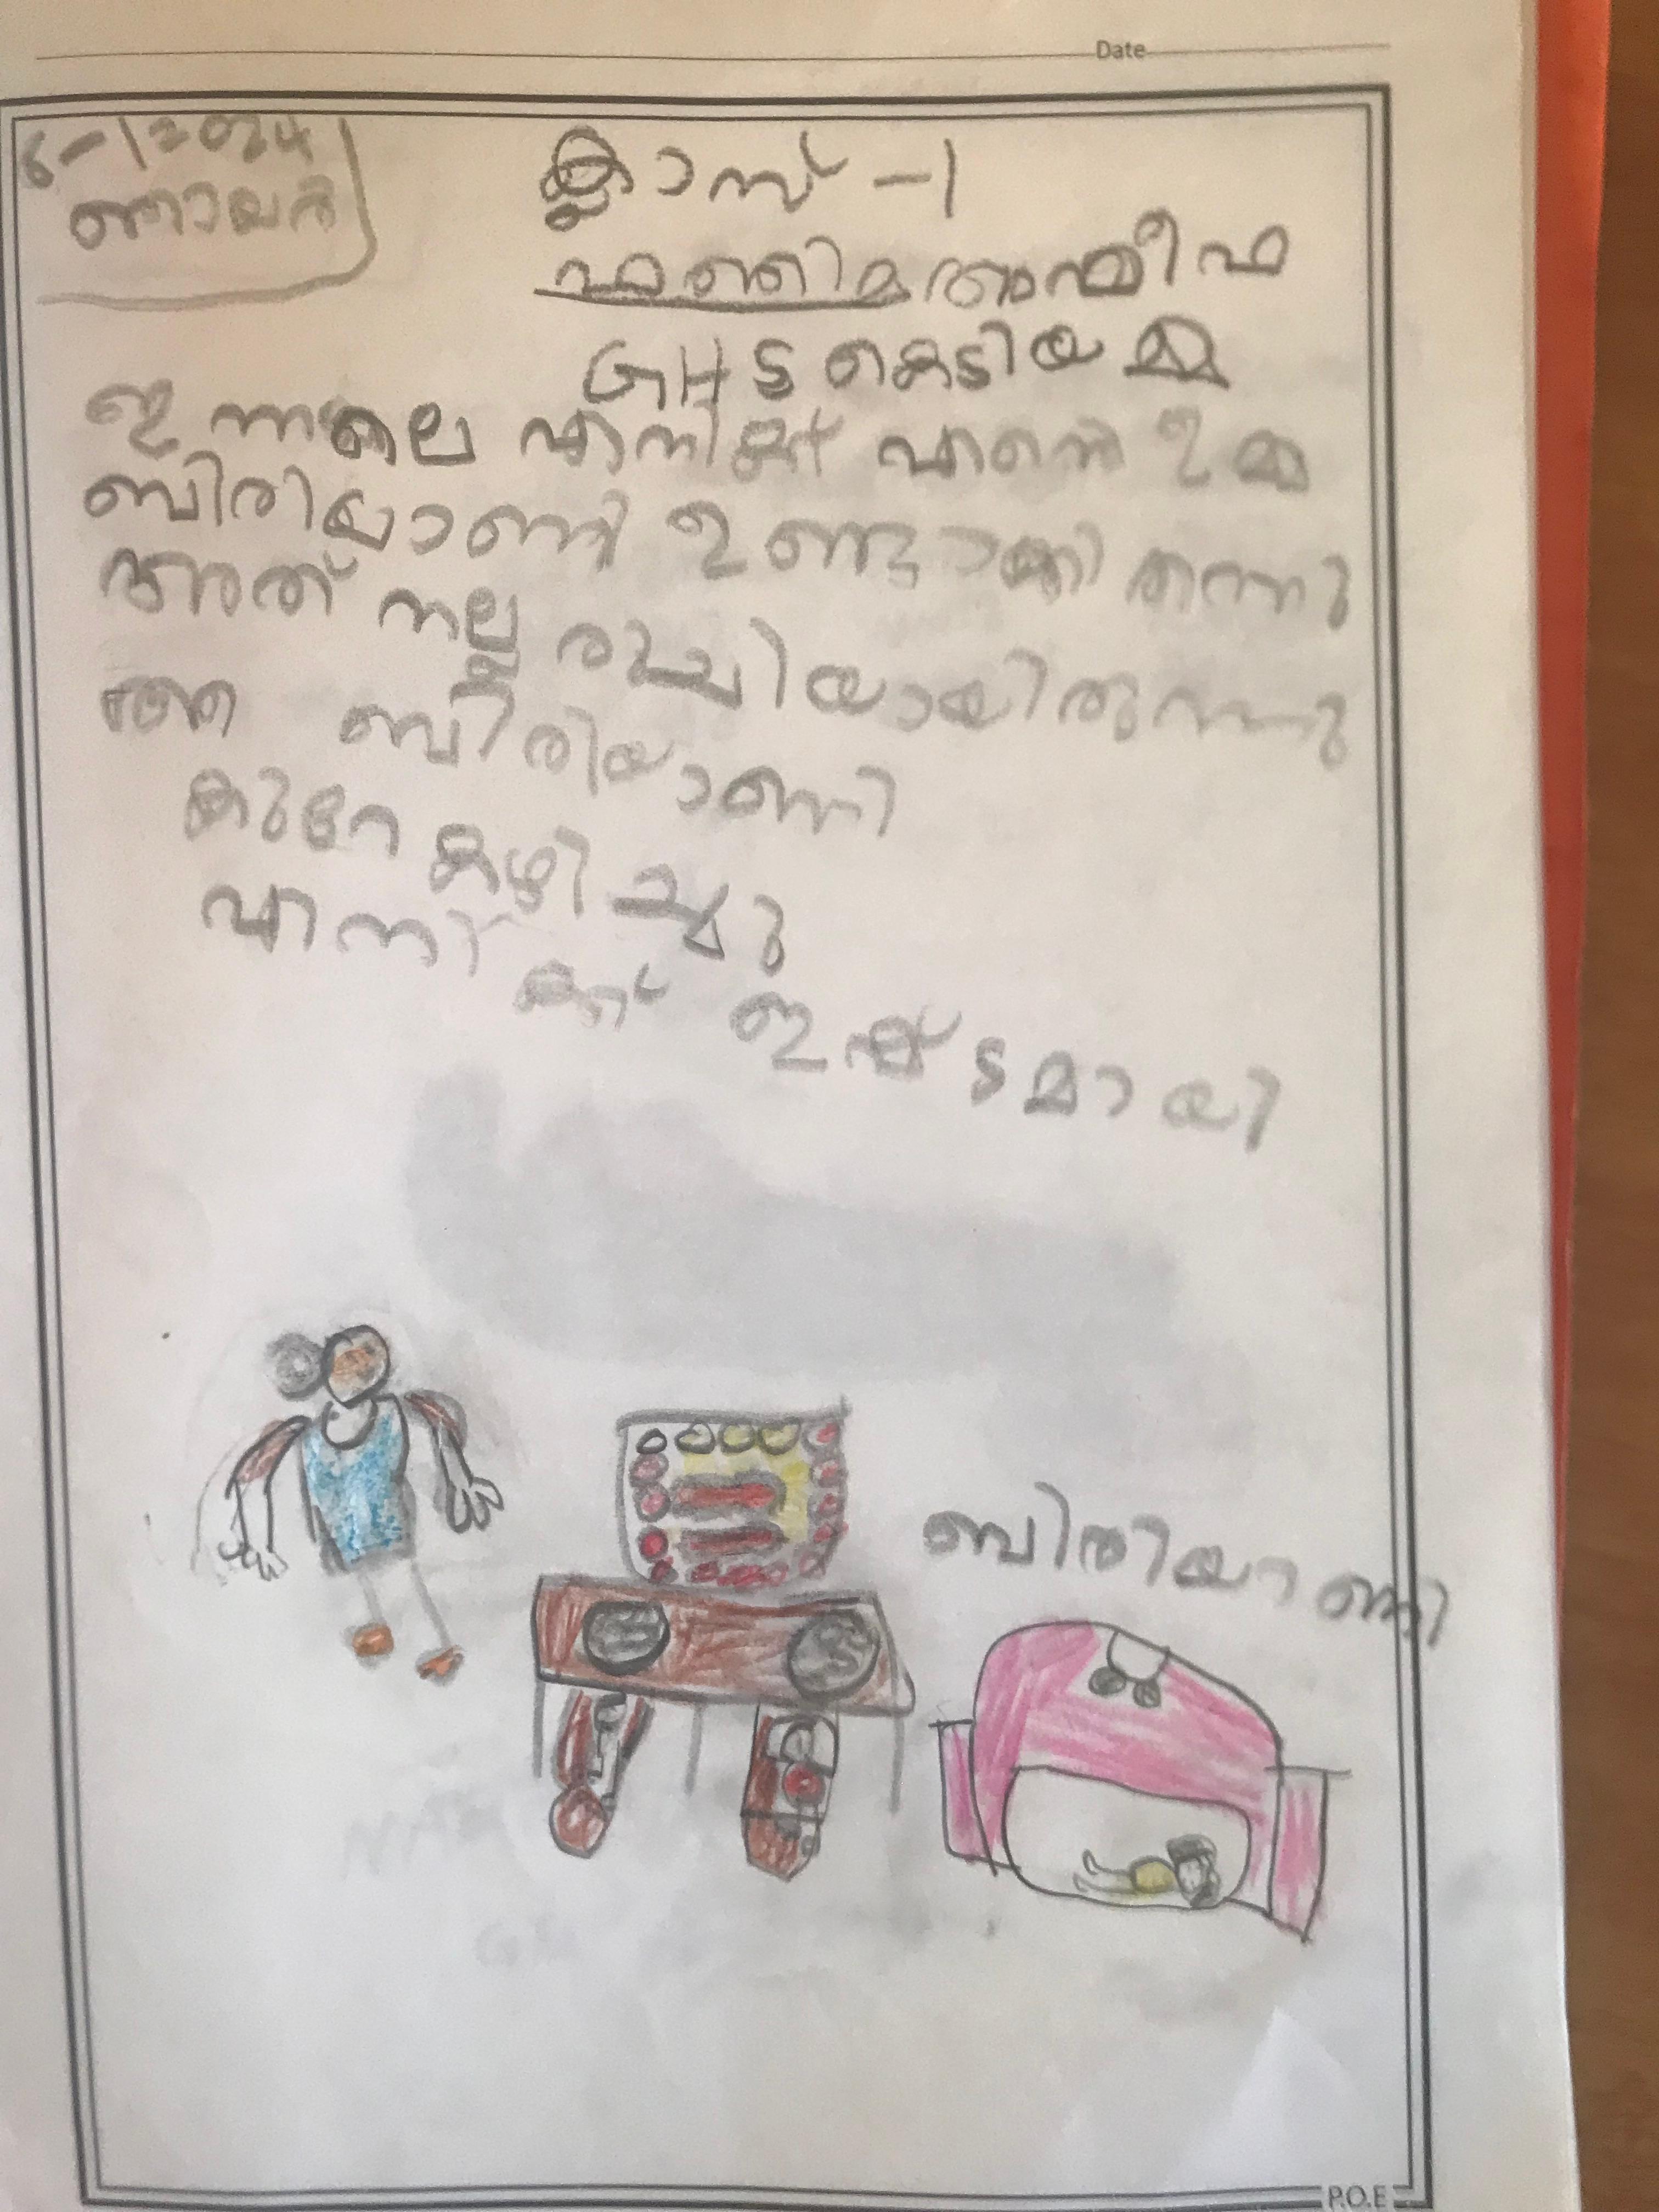 Date
6-12024
ഞായർ
ക്ലാസ് -1
ഫാത്തിമ
GHS കെടിയമ്മ
ഇന്നലെ എനിക്ക് എന്റെ ഉമ്മ
ബിരിയാണി ഉണ്ടാക്കി തന്നു
അത് നല്ല രുചിയായിരുന്നു
ഞാ ബിരിയാണി
കുറേ കഴിച്ചു
എനിക്ക് ഇഷ്ടമായി
ബിരിയാണി
P.O.E